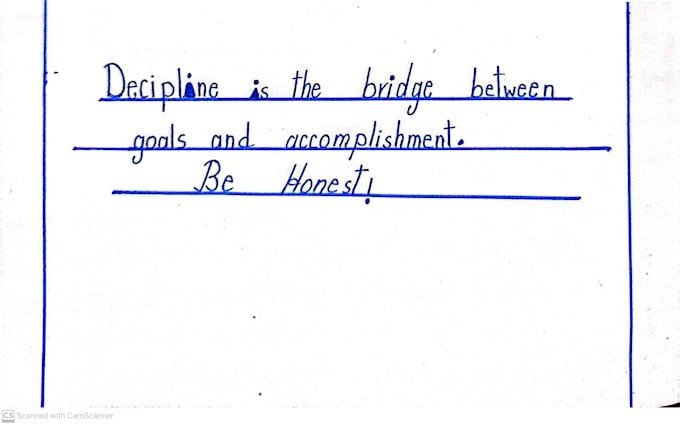 Decipline is the bridge between
goals and accomplishment.
Be Honest!
CS Scanned with CamScanner